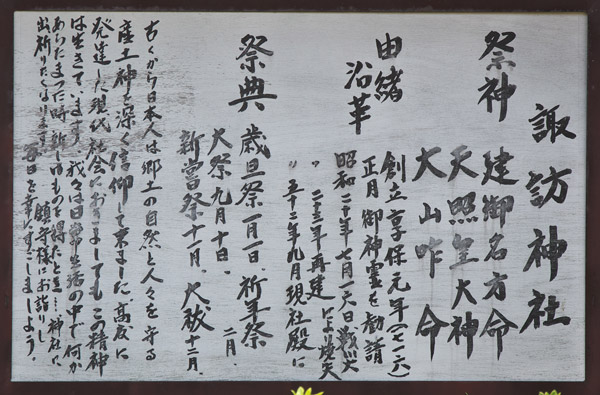 諏訪神社
祭神 建御名方命
天照皇大神
大山咋命
由緒
沿革
創立 享保元年(一七一六)
正月 御神霊を勧請
昭和二十年七月一六日戦災により焼失
〃 二三年再建
〃 五十二年九月現社殿に
祭典 歳旦祭一月一日、祈年祭二月、
大祭九月十日、
新嘗祭十一月、大祓十二月、
古くから日本人は郷土の自然と人々を守る
産土神を深く信仰して来ました、高度に
発達した現代社会におきましてもこの精神
は生きています、我々は日常生活の中で何か
あらたまった時、新しいものを得たとき…神社に
出祈りたくなります、鎮守様にお詣りし
毎日を幸に過しましょう。